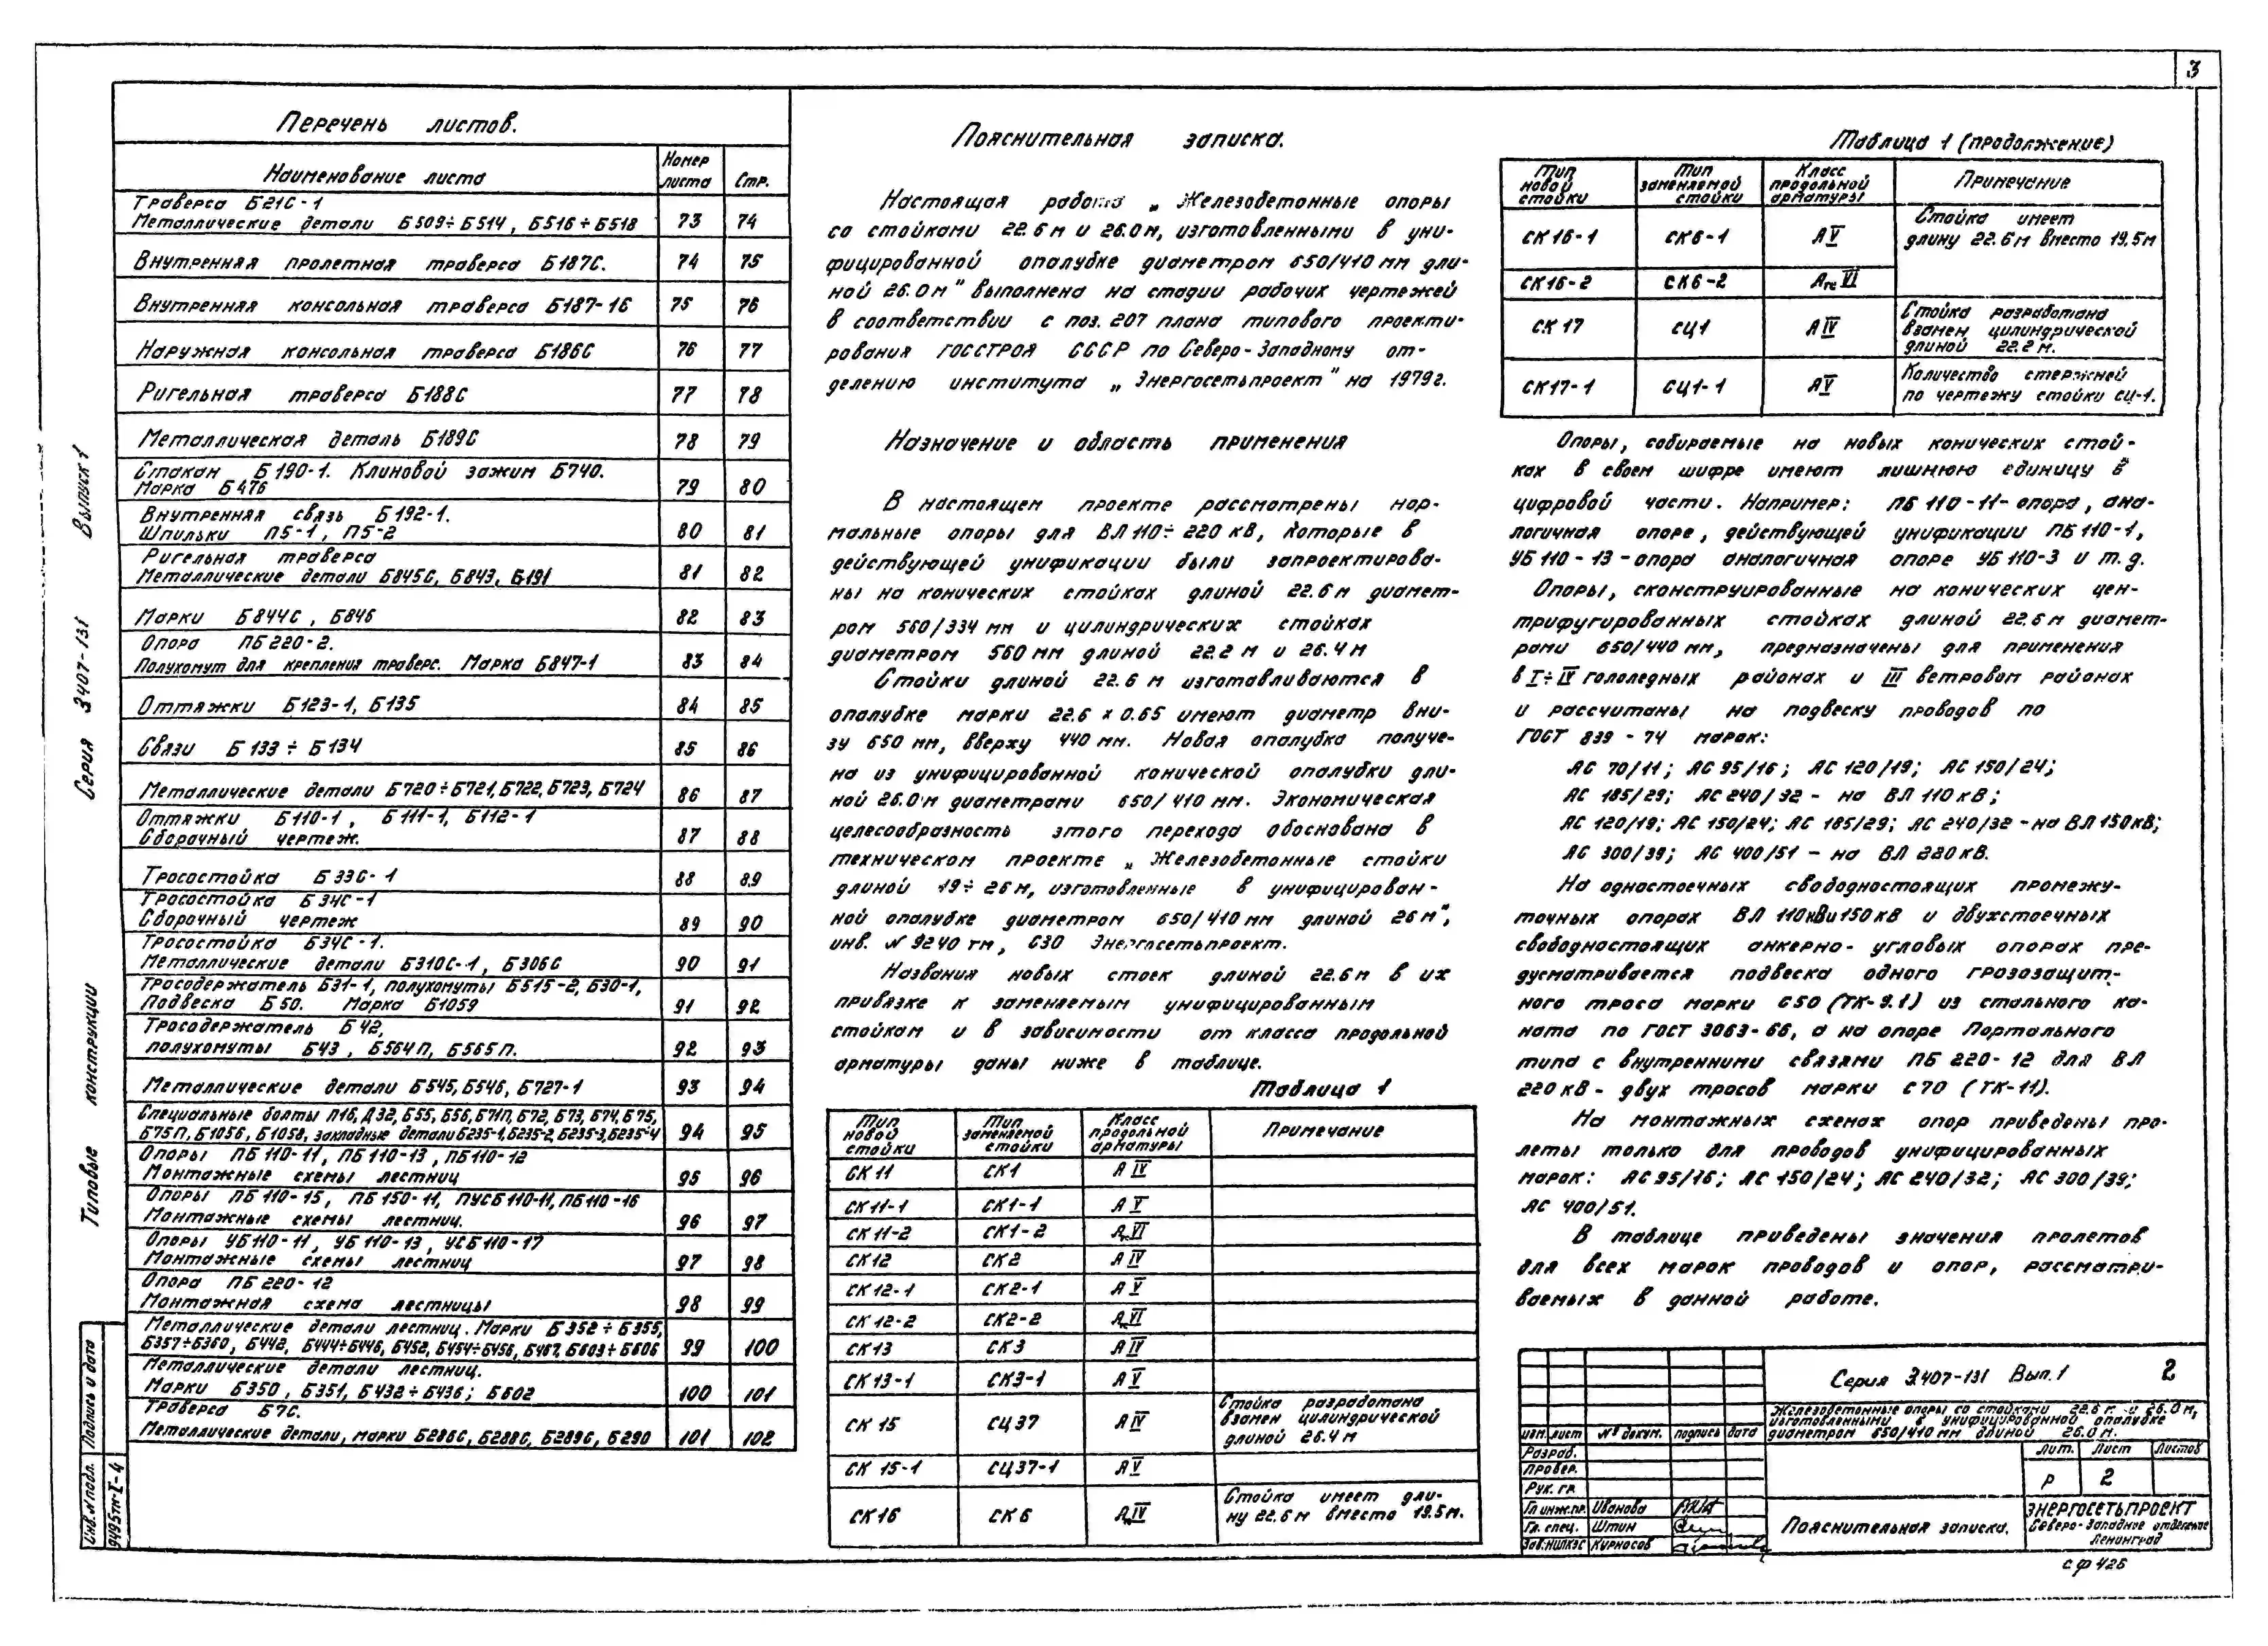 3
Перечень листов.
Наименование листа | Номер листа | Стр.
Траверса Б21С-1
Металлические детали Б509÷Б514, Б516÷Б518 | 73 | 74
Внутренняя пролетная траверса Б187С. | 74 | 75
Внутренняя консольная траверса Б187-1С | 75 | 76
Наружная консольная траверса Б186С | 76 | 77
Ригельная траверса Б188С | 77 | 78
Металлическая деталь Б189С | 78 | 79
Стакан Б190-1. Клиновой зажим Б740.
Марка Б476 | 79 | 80
Внутренняя связь Б192-1.
Шпильки П5-1, П5-2 | 80 | 81
Ригельная траверса
Металлические детали Б845С, Б843, Б191 | 81 | 82
Марки Б844С, Б846 | 82 | 83
Опора ПБ220-2.
Полухомут для крепления траверс. Марка Б847-1 | 83 | 84
Оттяжки Б123-1, Б135 | 84 | 85
Связи Б133÷Б134 | 85 | 86
Металлические детали Б720÷Б721, Б722, Б723, Б724 | 86 | 87
Оттяжки Б110-1, Б111-1, Б112-1
Сборочный чертеж. | 87 | 88
Тросостойка Б33С-1 | 88 | 89
Тросостойка Б34С-1
Сборочный чертеж | 89 | 90
Тросостойка Б34С-1.
Металлические детали Б310С-1, Б306С | 90 | 91
Тросодержатель Б31-1, полухомуты Б515-2, Б30-1,
Подвеска Б50. Марка Б1059 | 91 | 92
Тросодержатель Б42,
полухомуты Б43, Б564П, Б565П. | 92 | 93
Металлические детали Б545, Б546, Б727-1 | 93 | 94
Специальные болты П16, Д32, Б55, Б56, Б71П, Б72, Б73, Б74, Б75,
Б75П, Б1056, Б1058, закладные детали Б235-1, Б235-2, Б235-3, Б235-4 | 94 | 95
Опоры ПБ110-11, ПБ110-13, ПБ110-12
Монтажные схемы лестниц | 95 | 96
Опоры ПБ110-15, ПБ150-11, ПУСБ110-11, ПБ110-16
Монтажные схемы лестниц. | 96 | 97
Опоры УБ110-11, УБ110-13, УСБ110-17
Монтажные схемы лестниц | 97 | 98
Опора ПБ220-12
Монтажная схема лестницы | 98 | 99
Металлические детали лестниц. Марки Б352÷Б355,
Б357÷Б360, Б442, Б444÷Б446, Б452, Б454÷Б456, Б467, Б603÷Б606 | 99 | 100
Металлические детали лестниц.
Марки Б350, Б351, Б432÷Б436; Б602 | 100 | 101
Траверса Б7С.
Металлические детали, марки Б286С, Б288С, Б289С, Б290 | 101 | 102
Типовые конструкции Серия 3.407-131 Выпуск 1
Инв. № подл. Подпись и дата
9495тм-I-4
Пояснительная записка.
Настоящая работа „Железобетонные опоры
со стойками 22.6 м и 26.0 м, изготовленными в уни-
фицированной опалубке диаметром 650/410 мм дли-
ной 26.0 м" выполнена на стадии рабочих чертежей
в соответствии с поз. 207 плана типового проекти-
рования ГОССТРОЯ СССР по Северо-Западному от-
делению института „Энергосетьпроект" на 1979г.
Назначение и область применения
В настоящем проекте рассмотрены нор-
мальные опоры для ВЛ 110÷220 кВ, которые в
действующей унификации были запроектирова-
ны на конических стойках длиной 22.6 м диамет-
ром 560/334 мм и цилиндрических стойках
диаметром 560 мм длиной 22.2 м и 26.4 м
Стойки длиной 22.6 м изготавливаются в
опалубке марки 22.6 х 0.65 имеют диаметр вни-
зу 650 мм, вверху 440 мм. Новая опалубка получе-
на из унифицированной конической опалубки дли-
ной 26.0 м диаметрами 650/410 мм. Экономическая
целесообразность этого перехода обоснована в
техническом проекте „Железобетонные стойки
длиной 19÷26 м, изготовленные в унифицирован-
ной опалубке диаметром 650/410 мм длиной 26 м",
инв. № 9240 тм, СЗО Энергосетьпроект.
Названия новых стоек длиной 22.6 м в их
привязке к заменяемым унифицированным
стойкам и в зависимости от класса продольной
арматуры даны ниже в таблице.
Таблица 1
Тип новой стойки | Тип заменяемой стойки | Класс продольной арматуры | Примечание
СК 11 | СК1 | А IV
СК11-1 | СК1-1 | А V
СК 11-2 | СК1-2 | Ат VI
СК12 | СК2 | А IV
СК 12-1 | СК2-1 | А V
СК 12-2 | СК2-2 | Ат VI
СК13 | СК3 | А IV
СК 13-1 | СК3-1 | А V
СК 15 | СЦ37 | А IV | Стойка разработана взамен цилиндрической длиной 26.4 м
СК 15-1 | СЦ37-1 | А V
СК16 | СК6 | А IV | Стойка имеет дли-
ну 22.6 м вместо 19.5 м.
Таблица 1 (продолжение)
Тип новой стойки | Тип заменяемой стойки | Класс продольной арматуры | Примечание
СК16-1 | СК6-1 | А V | Стойка имеет длину 22.6 м вместо 19.5 м
СК16-2 | СК6-2 | Ат VI
СК 17 | СЦ1 | А IV | Стойка разработана взамен цилиндрической длиной 22.2 м.
СК17-1 | СЦ1-1 | А V | Количество стержней по чертежу стойки СЦ-1.
Опоры, собираемые на новых конических стой-
ках в своем шифре имеют лишнюю единицу в
цифровой части. Например: ПБ 110-11- опора, ана-
логичная опоре, действующей унификации ПБ 110-1,
УБ 110-13 - опора аналогичная опоре УБ 110-3 и т.д.
Опоры, сконструированные на конических цен-
трифугированных стойках длиной 22.6 м диамет-
рами 650/440 мм, предназначены для применения
в I÷IV гололедных районах и III ветровом районах
и рассчитаны на подвеску проводов по
ГОСТ 839-74 марок:
АС 70/11; АС 95/16; АС 120/19; АС 150/24;
АС 185/29; АС 240/32 - на ВЛ 110 кВ;
АС 120/19; АС 150/24; АС 185/29; АС 240/32 - на ВЛ 150кВ;
АС 300/39; АС 400/51 - на ВЛ 220 кВ.
На одностоечных свободностоящих промежу-
точных опорах ВЛ 110кВ и 150кВ и двухстоечных
свободностоящих анкерно-угловых опорах пре-
дусматривается подвеска одного грозозащит-
ного троса марки С50 (ТК-9.1) из стального ка-
ната по ГОСТ 3063-66, а на опоре Портального
типа с внутренними связями ПБ 220-12 для ВЛ
220 кВ - двух тросов марки С70 (ТК-11).
На монтажных схемах опор приведены про-
леты только для проводов унифицированных
марок: АС95/16; АС 150/24; АС 240/32; АС 300/39;
АС 400/51.
В таблице приведены значения пролетов
для всех марок проводов и опор, рассматри-
ваемых в данной работе.
Серия 3.407-131 Вып.1 2
Железобетонные опоры со стойками 22.6 м и 26.0 м,
изготовленными в унифицированной опалубке
диаметром 650/410 мм длиной 26.0 м.
изм. лист № докум. подпись дата
Разраб.
Провер.
Рук. гр.
Гл. инж. пр. Иванова
Гл. спец. Штин
Зав. НИЛКЭС Курносов
Пояснительная записка.
Лит. Лист Листов
Р 2
ЭНЕРГОСЕТЬПРОЕКТ
Северо-Западное отделение
Ленинград
сф 426